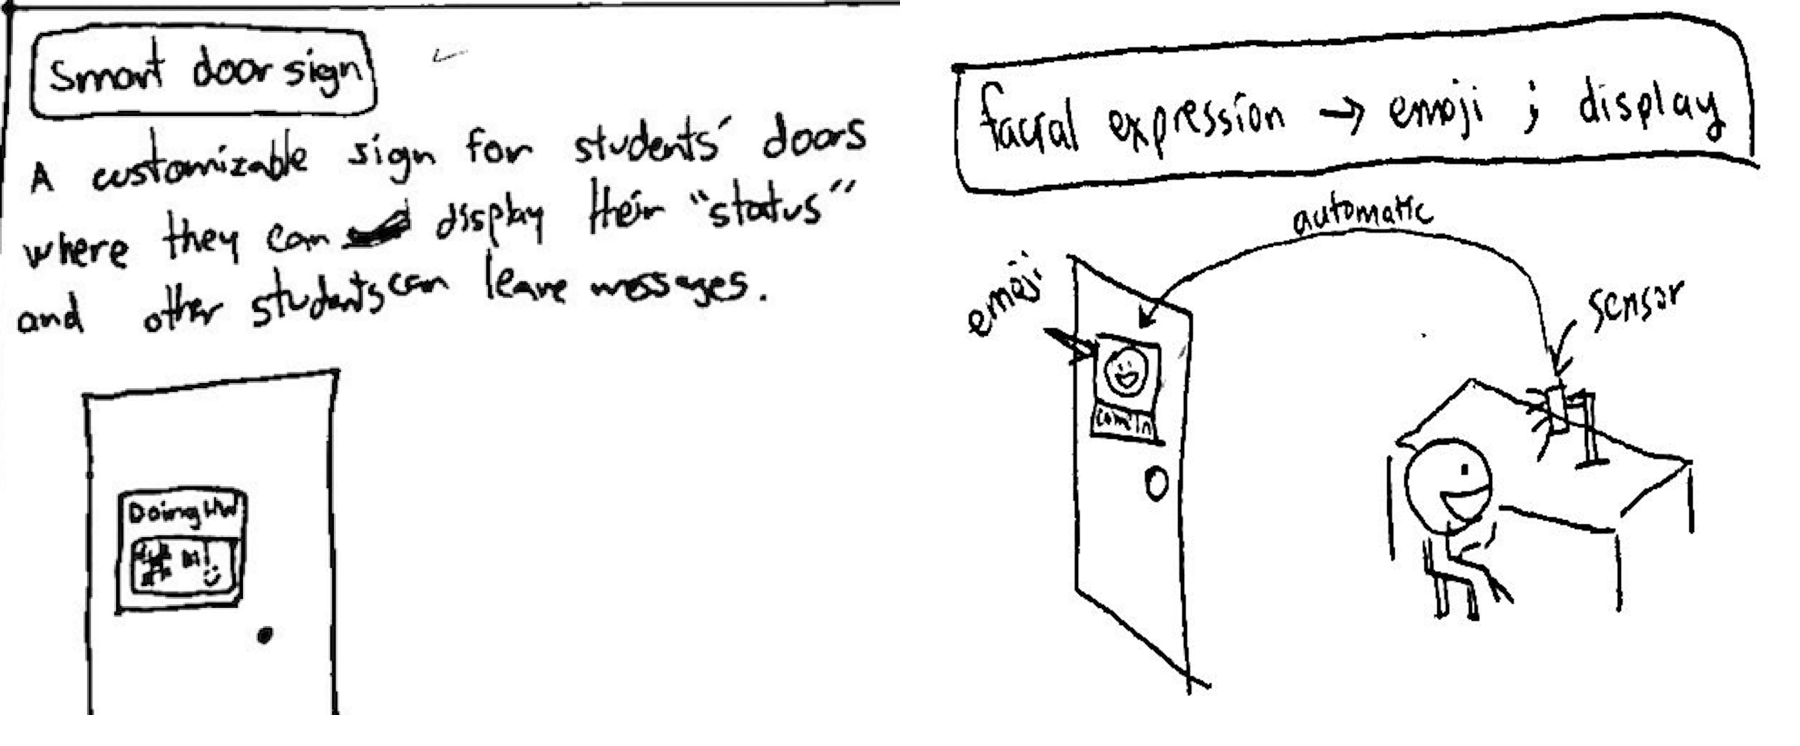 Smart door sign
A customizable sign for students' doors
where they can display their "status"
and other students can leave messages.
Doing HW
Hi!
facial expression → emoji ; display
automatic
emoji
sensor
come in